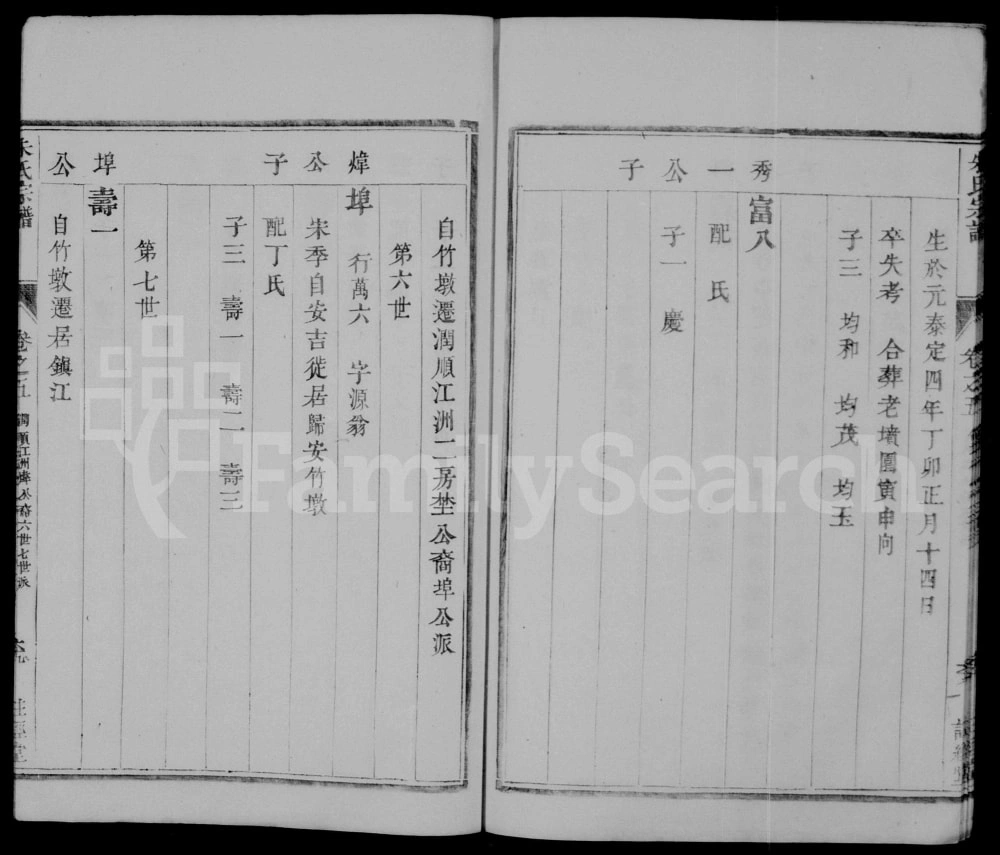 生於元泰定四年丁卯正月十四日
卒失考 合葬老墳園寅申向
子三 均和 均茂 均玉
秀一公子
富八
配 氏
子一 慶
自竹墩遷潤順江洲二房坓公裔埠公派
第六世
煒公子
埠 行萬六 字源翁
宋季自安吉徙居歸安竹墩
配丁氏
子三 壽一 壽二 壽三
第七世
埠公
壽一
自竹墩遷居鎮江
朱氏宗譜
卷之五
FamilySearch